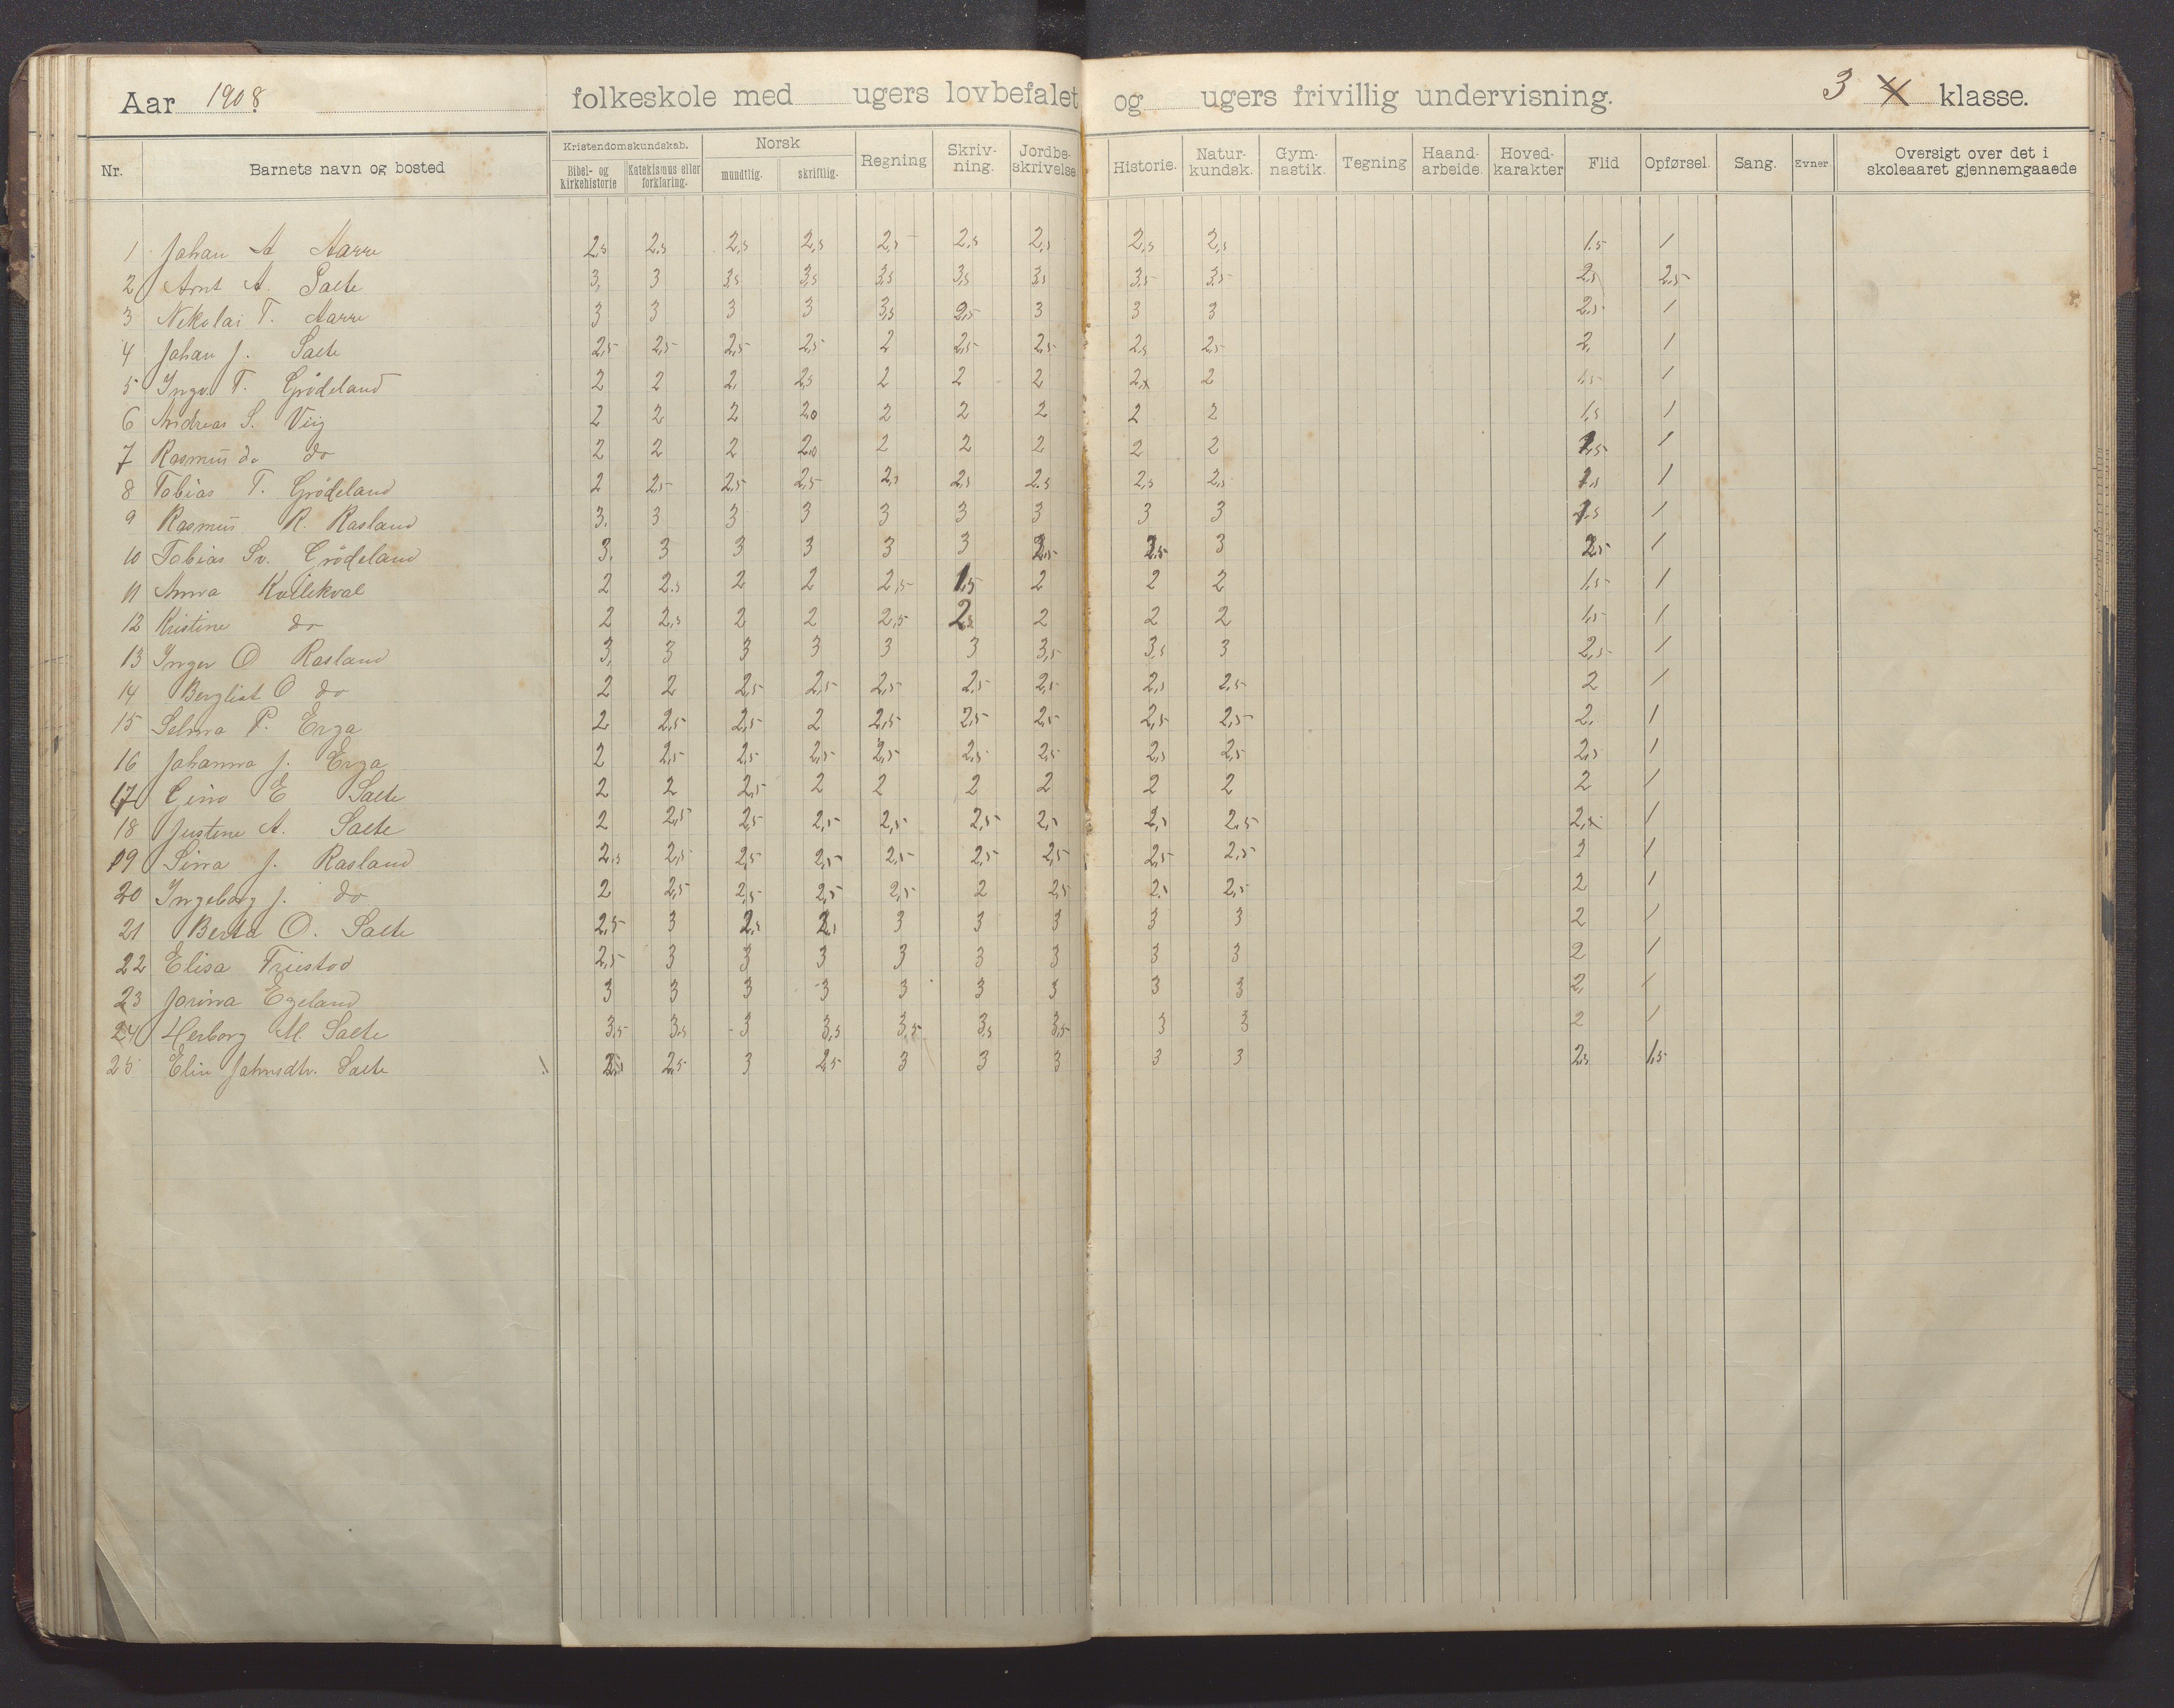 Aar 1908 folkeskole med ugers lovbefalet og ugers frivillig undervisning. 3 klasse.
Nr. Barnets navn og bosted Kristendomskundskab. Bibel- og kirkehistorie Katekismus eller forklaring. Norsk mundtlig. skriftlig. Regning Skriv-ning. Jordbe-skrivelse Historie. Natur-kundsk. Gym-nastik. Tegning Haand-arbeide. Hoved-karakter Flid Opførsel. Sang. Evner Oversigt over det i skoleaaret gjennemgaaede
1 Johan A Aarre 2,5 2,5 2,5 2,5 2,5 2,5 2,5 2,5 2,5 1.5 1
2 Arnt A. Salte 3, 3 3,5 3,5 3,5 3,5 3,5 3,5 3,5 2,5 2,5
3 Nikolai T. Aarre 3 3 3 3 3,5 2,5 3 3 3 2,5 1
4 Johan J. Salte 2,5 2,5 2,5 2,5 2 2,5 2,5 2,5 2,5 2, 1
5 Ingv. T. Grödeland 2 2 2, 2,5 2 2 2 2 1,5 1
6 Andreas S. Viig 2 2 2 2,0 2 2 2 2 2 1,5 1
7 Rasmus do do 2 2 2 2,0 2 2 2 2 2 1,5 1
8 Tobias T. Grödeland 2 2,5 2,5 2,5 2,5 2,5 2,5 2,5 2,5 1,5 1
9 Rasmus R. Rasland 3. 3 3 3 3 3 3 3 3 1
10 Tobias Sv. Grödeland 3. 3 3 3 3 3 2,5 3 2,5 1
11 Anna Kvilekval 2 2.5 2 2 2,5 1,5 2 2 2 1,5 1
12 Kristine do 2 2,5 2 2 2,5 2 2 2 1,5 1
13 Inger O Rasland 3, 3 3 3 3 3 3,5 3,5 3 2,5 1
14 Bergliot O do 2 2 2,5 2,5 2,5 2,5 2,5 2,5 2,5 2 1
15 Selma P. Erga 2 2,5 2,5 2 2,5 2,5 2,5 2,5 2,5 2, 1
16 Johanna J. Erga 2 2,5 2,5 2,5 2,5 2,5 2,5 2,5 2,5 2,5 1
17 E Salte 2 2 2,5 2 2 2 2 2 2 2 1
18 Justine A. Salte 2 2,5 2,5 2,5 2,5 2,5 2,5 2,5 2,5 1
19 J. Rasland 2,5 2,5 2,5 2,5 2,5 2,5 2,5 2,5 2,5 1
20 Ingeborg J. do 2 2,5 2,5 2,5 2,5 2 2,5 2,5 2,5 2 1
21 Berta O. Salte 2,5 3 2,5 2, 3 3 3 3 3 2 1
22 Elisa Friestad 2,5 3 3 3 3 3 3 3 3 2 1
23 Jorina Egeland 3 3 3 3 3 3 3 3 3 2, 1
24 Herborg M. Salte 3,5 3,5 3 3,5 3,5 3,5 3,5 3 3 2 1
25 Elin Johnsdtr. Salte 2,5 3 2,5 3 3 3 3 3 2,5 1,5